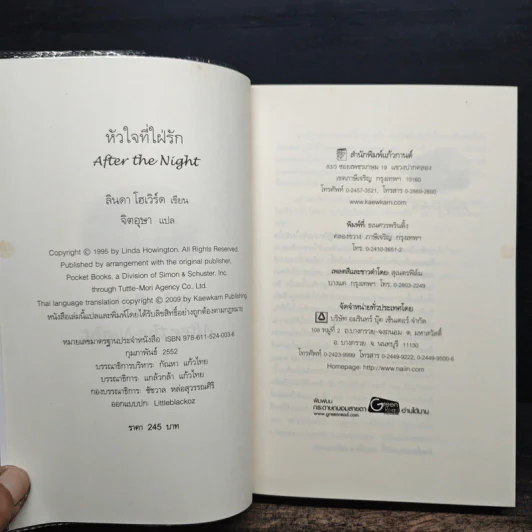 หัวใจที่ใฝ่รัก
After the Night
ลินดา โฮเวิร์ด เขียน
จิตอุษา แปล
Copyright © 1995 by Linda Howington. All Rights Reserved
Published by arrangement with the original publisher,
Pocket Books, a Division of Simon & Schuster, Inc.
through Tuttle-Mori Agency Co., Ltd.
Thai language translation copyright © 2009 by Kaewkarn Publishing
หนังสือเล่มนี้แปลและพิมพ์โดยได้รับลิขสิทธิ์อย่างถูกต้องตามกฎหมาย
หมายเลขมาตรฐานประจำหนังสือ ISBN 978-611-524-003-6
กุมภาพันธ์ 2552
บรรณาธิการบริหาร: กัณหา แก้วไทย
บรรณาธิการ: แกล้วกล้า แก้วไทย
กองบรรณาธิการ: ชัชวาล หล่อสุวรรณศิริ
ออกแบบปก: Littleblackoz
ราคา 245 บาท
สำนักพิมพ์แก้วกานต์
ซอยเพชรเกษม 19 แขวงปากคลอง
เขตภาษีเจริญ กรุงเทพฯ 10160
โทรศัพท์ 0-2457-3521, โทรสาร
www.kaewkarn.com
พิมพ์ที่:
คลองขวาง ภาษีเจริญ กรุงเทพฯ
โทร. 0-2410-3651-2
เพลตสีและขาวดำโดย:
บางแค กรุงเทพฯ โทร. 0-2803-2249
จัดจำหน่ายทั่วประเทศโดย
บริษัท อมรินทร์ บุ๊ค เซ็นเตอร์ จำกัด
108 หมู่ที่ 2 ถ.บางกรวย-จงถนอม ต. มหาสวัสดิ์
อ. บางกรวย จ. นนทบุรี 11130
โทร. 0-2423-9999 โทรสาร 0-2449-9222, 0-2449-9500-6
Homepage: http://www.naiin.com
พิมพ์บน
กระดาษถนอมสายตา Green Read อ่านได้นาน
www.greenread.com